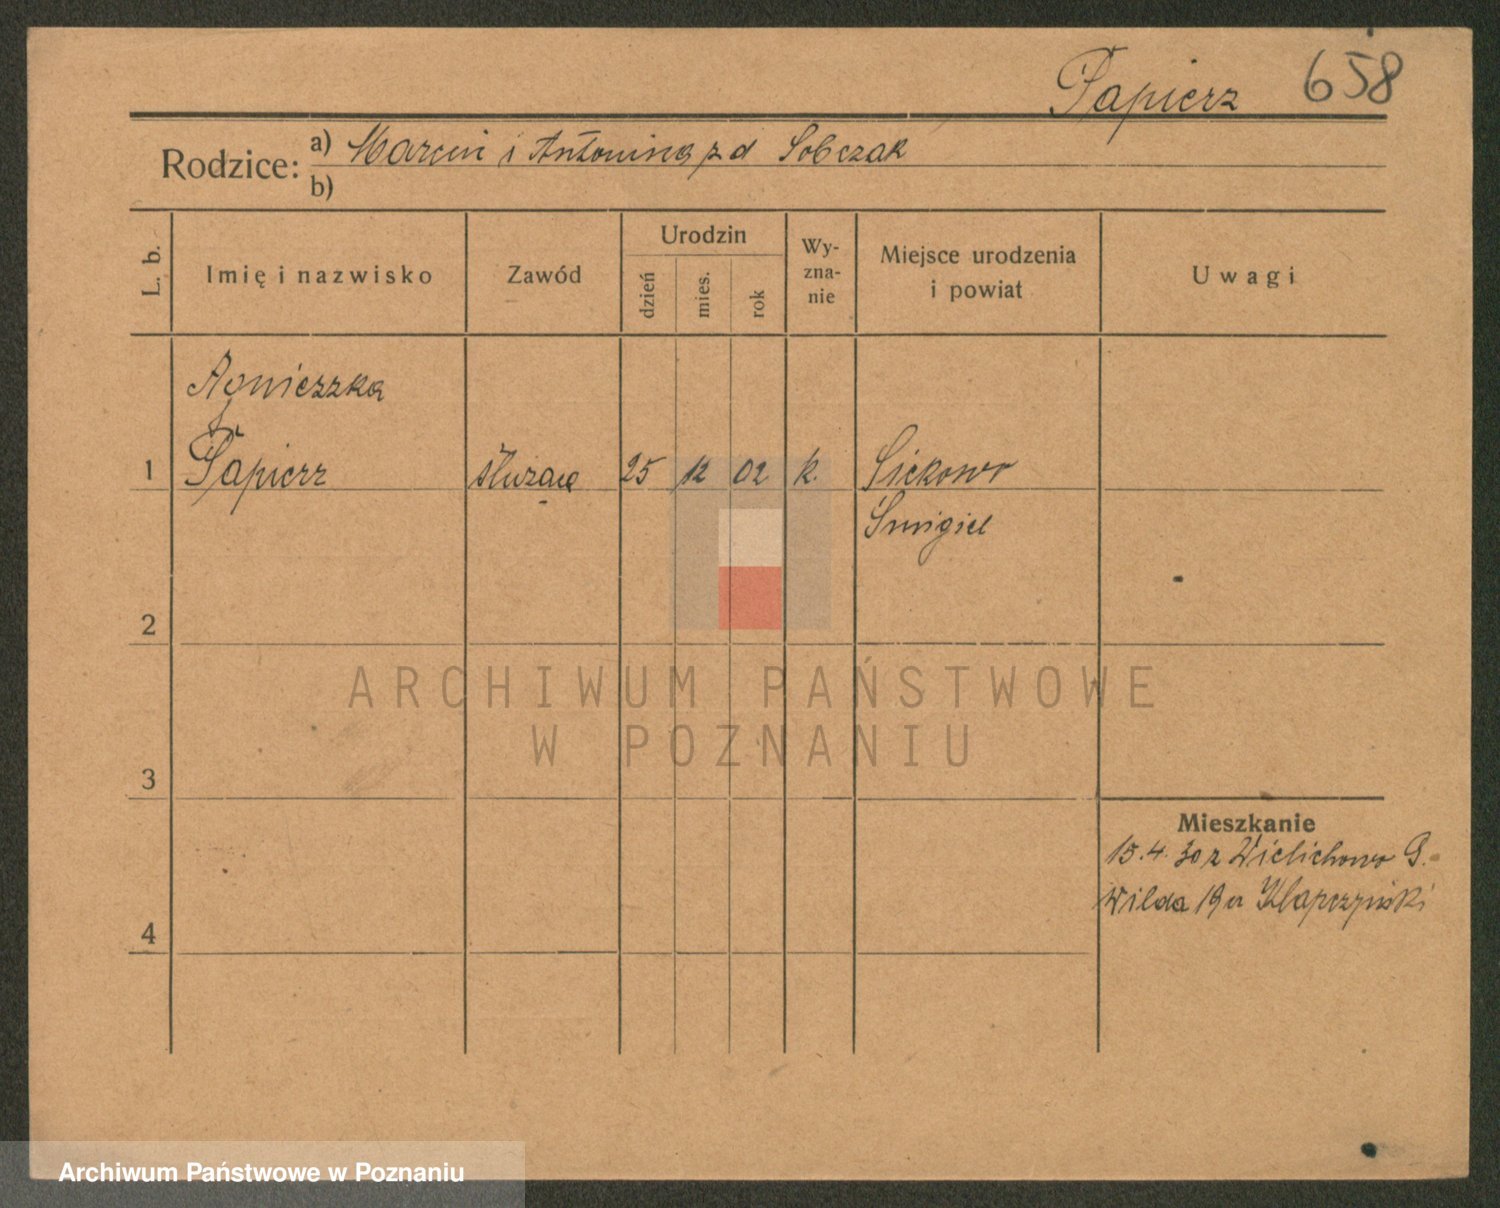 Papierz 658
Rodzice: a) Marcin i Antonina z d Sobczak
b)
L. b.
Imię i nazwisko
Zawód
Urodzin
dzień
mies.
rok
Wy-
zna-
nie
Miejsce urodzenia
i powiat
Uwagi
Agnieszka
1 Papierz służąca 25 12 02 k. Siekowo
Śmigiel
2
ARCHIWUM PAŃSTWOWE
W POZNANIU
3
Mieszkanie
15.4.30 z Wielichowo G.
Wilda 19 u Klapczyński
4
Archiwum Państwowe w Poznaniu